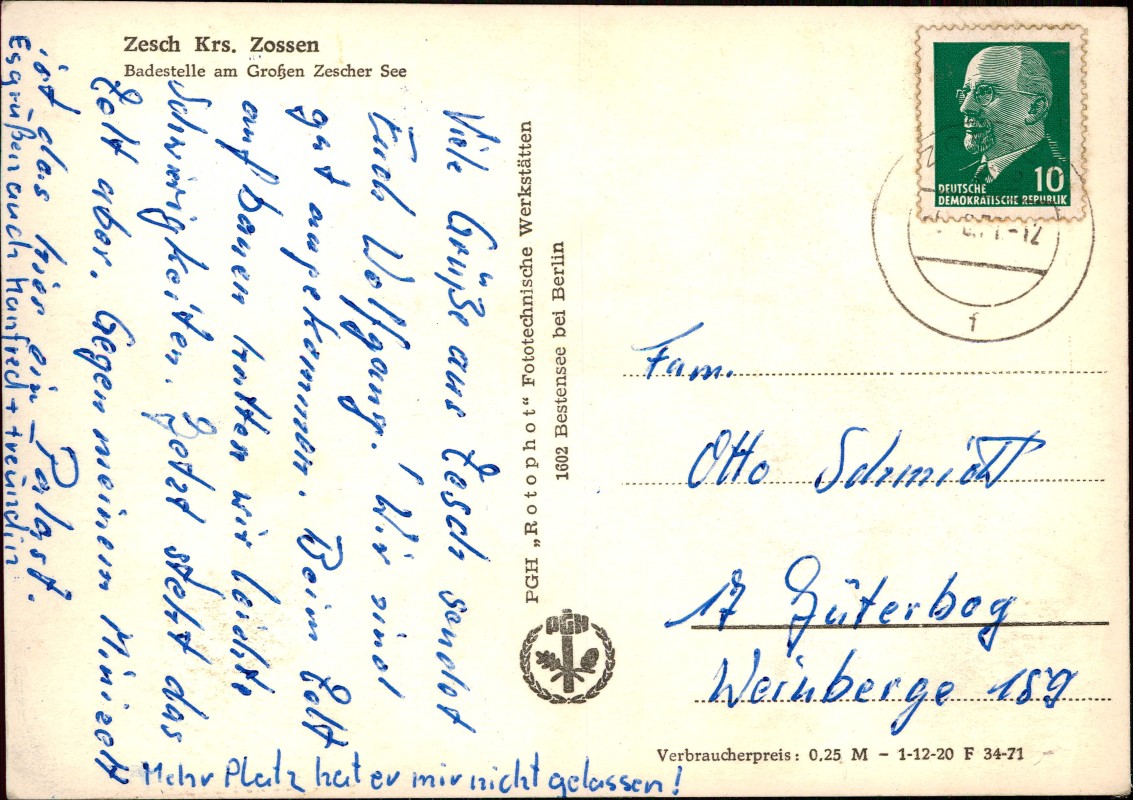 Zesch Krs. Zossen
Badestelle am Großen Zescher See
Viele Grüße aus Zesch sendet
Euch Wolfgang. Wir sind
gut angekommen. Beim Zelt
aufbauen hatten wir leichte
Schwirigkeiten. Jetzt steht das
Zelt aber. Gegen meinem Minizelt
ist das hier ein Palast.
Es grüßen auch Manfred + Freundin
Mehr Platz hat er mir nicht gelassen!
PGH „Rotophot“ Fototechnische Werkstätten
1602 Bestensee bei Berlin
PGH
10
DEUTSCHE
DEMOKRATISCHE REPUBLIK
-12
f
Fam.
Otto Schmidt
17 Jüterbog
Weinberge 15g
Verbraucherpreis: 0,25 M – 1-12-20 F 34-71